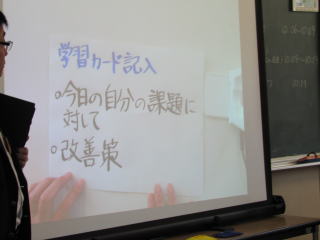 学習カード記入
○今日の自分の課題に
対して
○改善策